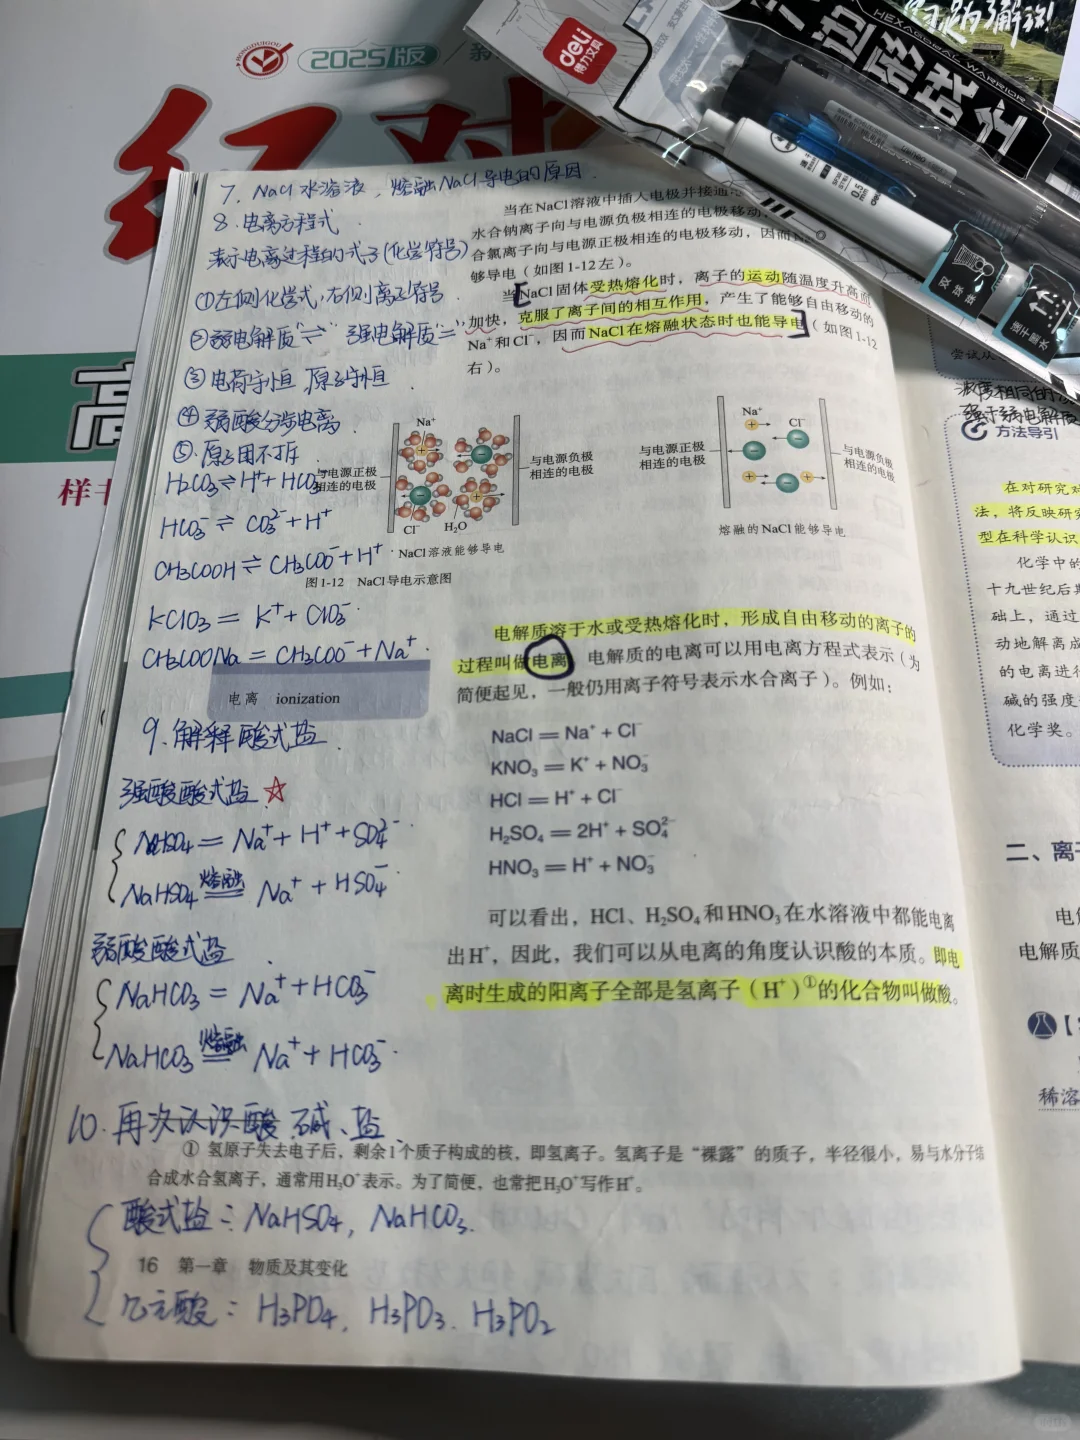 2025版
红对
deli
得力文具
HEXAGONAL WARRIOR
0.5
双珠
速干墨水
高
样书
7. NaCl水溶液，熔融NaCl导电的原因.
8. 电离方程式
表示电离过程的式子(化学符号)
①左侧化学式，右侧离子符号.
②弱电解质"⇌" 强电解质"="
③电荷守恒 原子守恒
④弱酸分步电离.
⑤原子团不拆
H₂CO₃⇌H⁺+HCO₃⁻
HCO₃⁻⇌CO₃²⁻+H⁺
CH₃COOH⇌CH₃COO⁻+H⁺
KClO₃=K⁺+ClO₃⁻
CH₃COONa=CH₃COO⁻+Na⁺
电离 ionization
9. 解释酸式盐
强酸酸式盐☆
NaHSO₄=Na⁺+H⁺+SO₄²⁻
NaHSO₄ 熔融= Na⁺+HSO₄⁻
弱酸酸式盐
NaHCO₃=Na⁺+HCO₃⁻
NaHCO₃ 熔融= Na⁺+HCO₃⁻
10. 再次认识酸、碱、盐
当在NaCl溶液中插入电极并接通
水合钠离子向与电源负极相连的电极移动，
合氯离子向与电源正极相连的电极移动，因而
够导电（如图1-12左）。
当NaCl固体受热熔化时，离子的运动随温度升高而
加快，克服了离子间的相互作用，产生了能够自由移动的
Na⁺和Cl⁻，因而NaCl在熔融状态时也能导电（如图1-12
右）。
与电源正极
相连的电极
Na⁺
Cl⁻
H₂O
与电源负极
相连的电极
NaCl溶液能够导电
与电源正极
相连的电极
Na⁺
Cl⁻
与电源负极
相连的电极
熔融的NaCl能够导电
图1-12 NaCl导电示意图
电解质溶于水或受热熔化时，形成自由移动的离子的
过程叫做电离。电解质的电离可以用电离方程式表示（为
简便起见，一般仍用离子符号表示水合离子）。例如：
NaCl═Na⁺+Cl⁻
KNO₃═K⁺+NO₃⁻
HCl═H⁺+Cl⁻
H₂SO₄═2H⁺+SO₄²⁻
HNO₃═H⁺+NO₃⁻
可以看出，HCl、H₂SO₄和HNO₃在水溶液中都能电离
出H⁺，因此，我们可以从电离的角度认识酸的本质。即电
离时生成的阳离子全部是氢离子（H⁺）①的化合物叫做酸。
① 氢原子失去电子后，剩余1个质子构成的核，即氢离子。氢离子是“裸露”的质子，半径很小，易与水分子结
合成水合氢离子，通常用H₃O⁺表示。为了简便，也常把H₃O⁺写作H⁺。
酸式盐：NaHSO₄，NaHCO₃.
16 第一章 物质及其变化
几元酸：H₃PO₄，H₃PO₃．H₃PO₂
浓度相同的
强于弱电解质
方法导引
在对研究对
法，将反映研究
型在科学认识
化学中的
十九世纪后期
础上，通过
动地解离成
的电离进行
碱的强度
化学奖。
二、离子
电解
电解质
稀溶